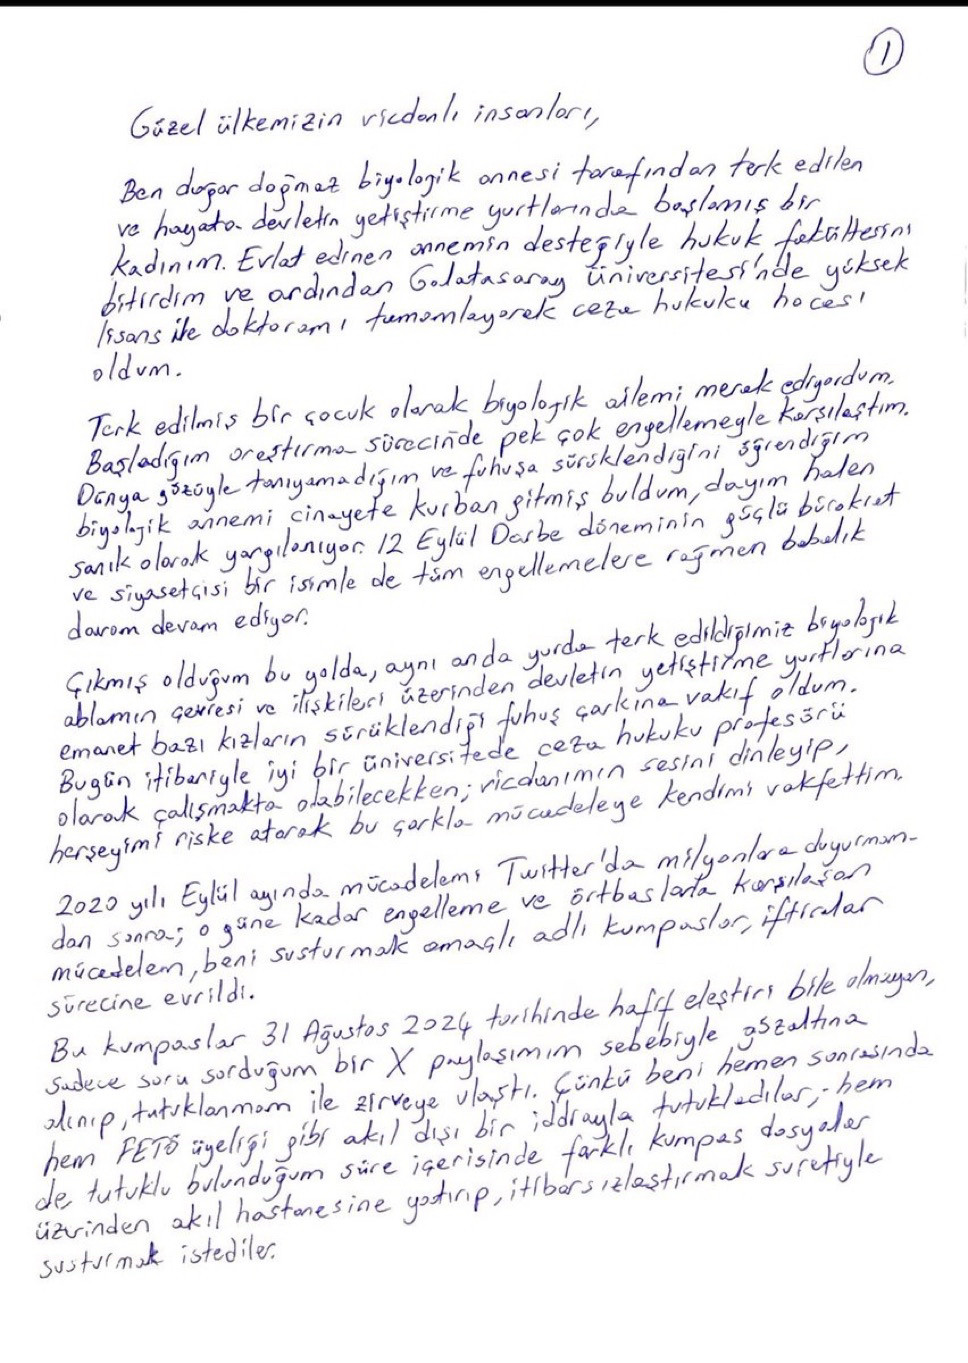 1
Güzel ülkemizin vicdanlı insanları,
Ben doğar doğmaz biyolojik annesi tarafından terk edilen
ve hayata devletin yetiştirme yurtlarında başlamış bir
kadınım. Evlat edinen annemin desteğiyle hukuk fakültesini
bitirdim ve ardından Galatasaray Üniversitesi'nde yüksek
lisans ile doktoramı tamamlayarak ceza hukuku hocası
oldum.
Terk edilmiş bir çocuk olarak biyolojik ailemi merak ediyordum.
Başladığım araştırma sürecinde pek çok engellemeyle karşılaştım.
Dünya gözüyle tanıyamadığım ve fuhuşa sürüklendiğini öğrendiğim
biyolojik annemi cinayete kurban gitmiş buldum, dayım halen
sanık olarak yargılanıyor. 12 Eylül Darbe döneminin güçlü bürokrat
ve siyasetçisi bir isimle de tüm engellemelere rağmen babalık
davam devam ediyor.
Çıkmış olduğum bu yolda, aynı anda yurda terk edildiğimiz biyolojik
ablamın çevresi ve ilişkileri üzerinden devletin yetiştirme yurtlarına
emanet bazı kızların sürüklendiği fuhuş çarkına vakıf oldum.
Bugün itibariyle iyi bir üniversitede ceza hukuku profesörü
olarak çalışmakta olabilecekken; vicdanımın sesini dinleyip,
herşeyimi riske atarak bu çarkla mücadeleye kendimi vakfettim.
2020 yılı Eylül ayında mücadelemi Twitter'da milyonlara duyurmam-
dan sonra; o güne kadar engelleme ve örtbaslarla karşılaşan
mücadelem, beni susturmak amaçlı adli kumpaslar, iftiralar
sürecine evrildi.
Bu kumpaslar 31 Ağustos 2024 tarihinde hafif eleştiri bile olmayan,
sadece soru sorduğum bir X paylaşımım sebebiyle gözaltına
alınıp, tutuklanmam ile zirveye ulaştı. Çünkü beni hemen sonrasında
hem FETÖ üyeliği gibi akıl dışı bir iddiayla tutukladılar; hem
de, tutuklu bulunduğum süre içerisinde farklı kumpas dosyalar
üzerinden akıl hastanesine yatırıp, itibarsızlaştırmak suretiyle
susturmak istediler.